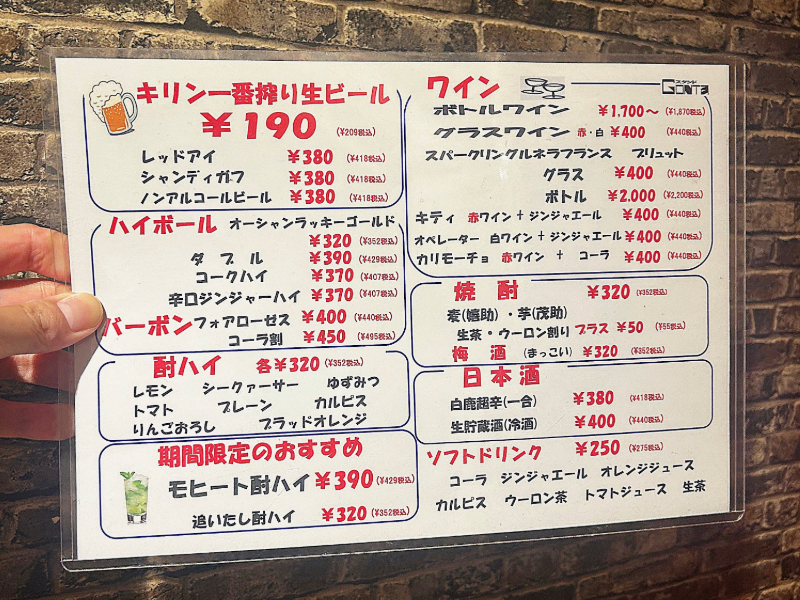 キリン一番搾り生ビール
¥190 (¥209税込)
レッドアイ ¥380 (¥418税込)
シャンディガフ ¥380 (¥418税込)
ノンアルコールビール ¥380 (¥418税込)
ハイボール オーシャンラッキーゴールド
¥320 (¥352税込)
ダブル ¥390 (¥429税込)
コークハイ ¥370 (¥407税込)
辛口ジンジャーハイ ¥370 (¥407税込)
バーボン フォアローゼス ¥400 (¥440税込)
コーラ割 ¥450 (¥495税込)
酎ハイ 各¥320 (¥352税込)
レモン シークァーサー ゆずみつ
トマト プレーン カルピス
りんごおろし ブラッドオレンジ
期間限定のおすすめ
モヒート酎ハイ ¥390 (¥429税込)
追いだし酎ハイ ¥320 (¥352税込)
スタンド
GONTA
ワイン
ボトルワイン ¥1,700～ (¥1,870税込)
グラスワイン 赤・白 ¥400 (¥440税込)
スパークリングルネラフランス ブリュット
グラス ¥400 (¥440税込)
ボトル ¥2,000 (¥2,200税込)
キティ 赤ワイン＋ジンジャエール ¥400 (¥440税込)
オペレーター 白ワイン＋ジンジャエール ¥400 (¥440税込)
カリモーチョ 赤ワイン ＋ コーラ ¥400 (¥440税込)
焼酎 ¥320 (¥352税込)
麦(嬉助)・芋(茂助)
生茶・ウーロン割り プラス ¥50 (¥55税込)
梅酒 (まっこい) ¥320 (¥352税込)
日本酒
白鹿超辛(一合) ¥380 (¥418税込)
生貯蔵酒(冷酒) ¥400 (¥440税込)
ソフトドリンク ¥250 (¥275税込)
コーラ ジンジャエール オレンジジュース
カルピス ウーロン茶 トマトジュース 生茶